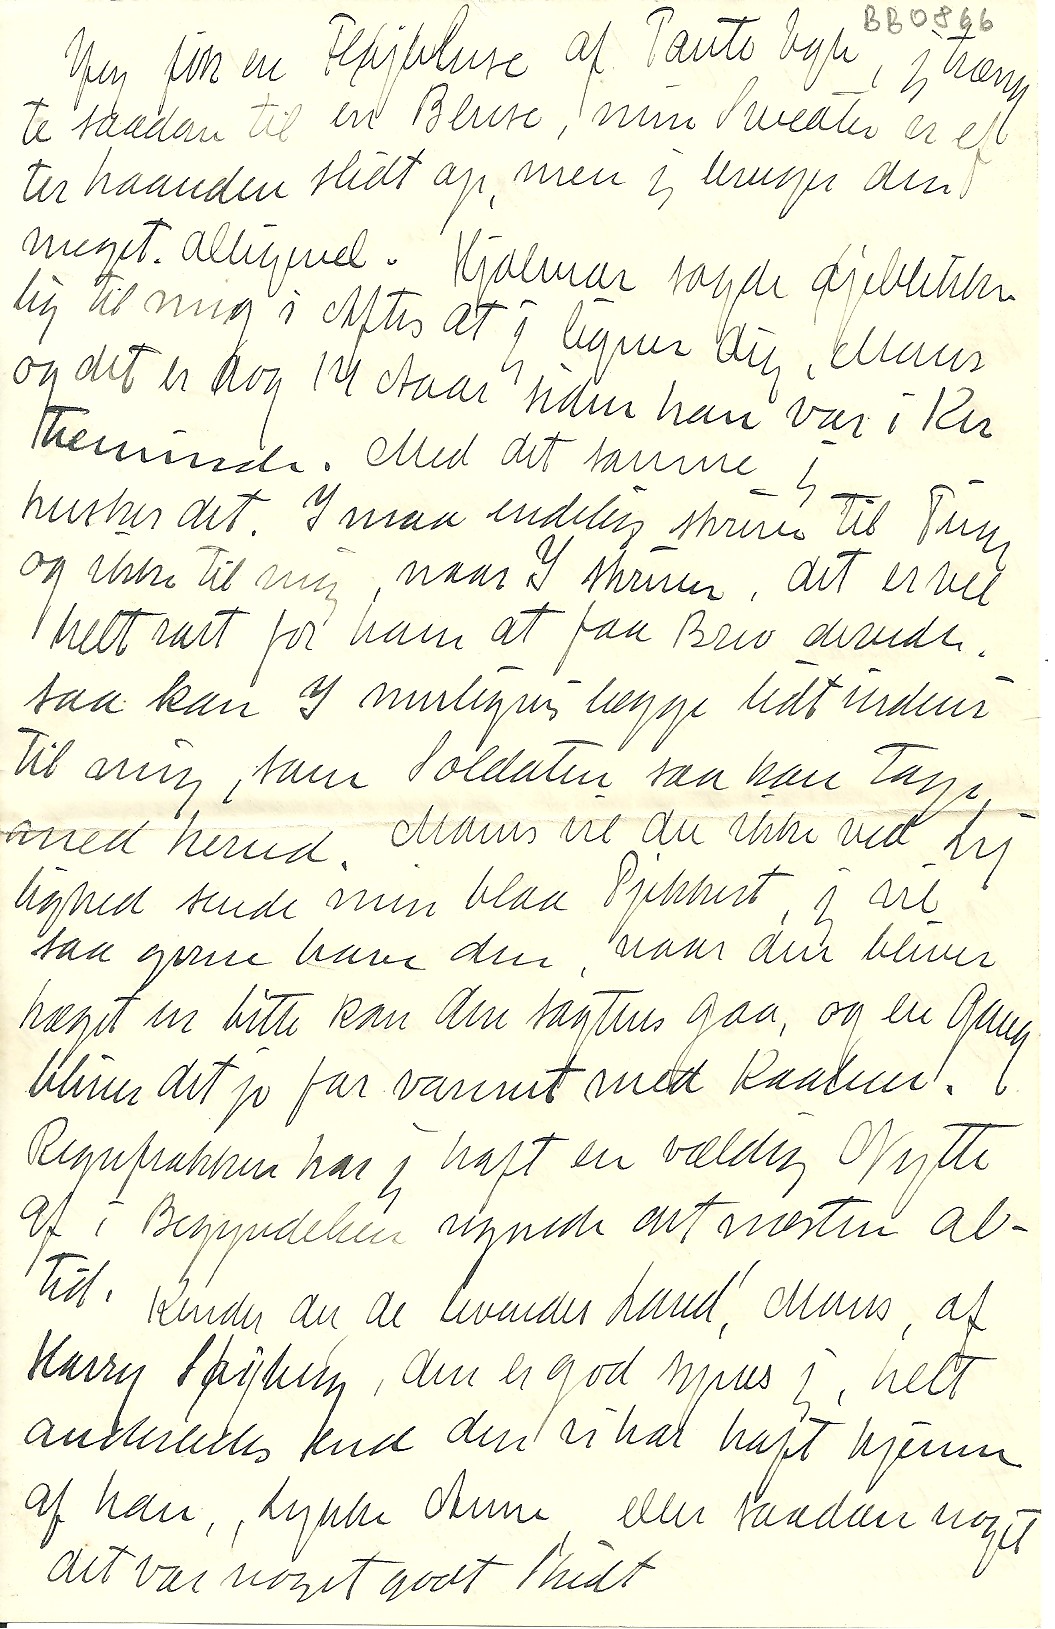 BB0866
Jeg fik en Fløjlsbluse af Tante Ugle, jeg træng
te saadan til en Bluse, min Sweater er ef
terhaanden slidt op, men jeg bruger den
meget. alligevel. Hjalmar sagde øjeblikke
lig til mig i Aftes at jeg ligner dig, Mams
og det er dog 14 Aar siden han var i Ker
teminde. Med det samme jeg
husker det. I maa endelig skrive til
og ikke til mig, naar I skriver, det er vel
helt rart for ham at faa Brev derinde.
saa kan I muligvis lægge lidt indeni
til mig, som Soldaten saa kan tage
med herud. Mams vil du ikke ved Lej
lighed sende min blaa Pjekkert, jeg vil
saa gerne have den, naar den bliver
hæget en bitte kan den sagtens gaa, og en Gang
bliver det jo for varmt med Kaaben.
Regnfrakken har jeg haft en vældig Nytte
af i Begyndelsen regnede det næsten al-
tid. Kender du de levendes Land, Mams, af
Harry Søiberg, den er god synes jeg, helt
anderledes end den vi har haft hjemme
af han, Lykke Anne eller saadan noget
det var noget godt Skidt